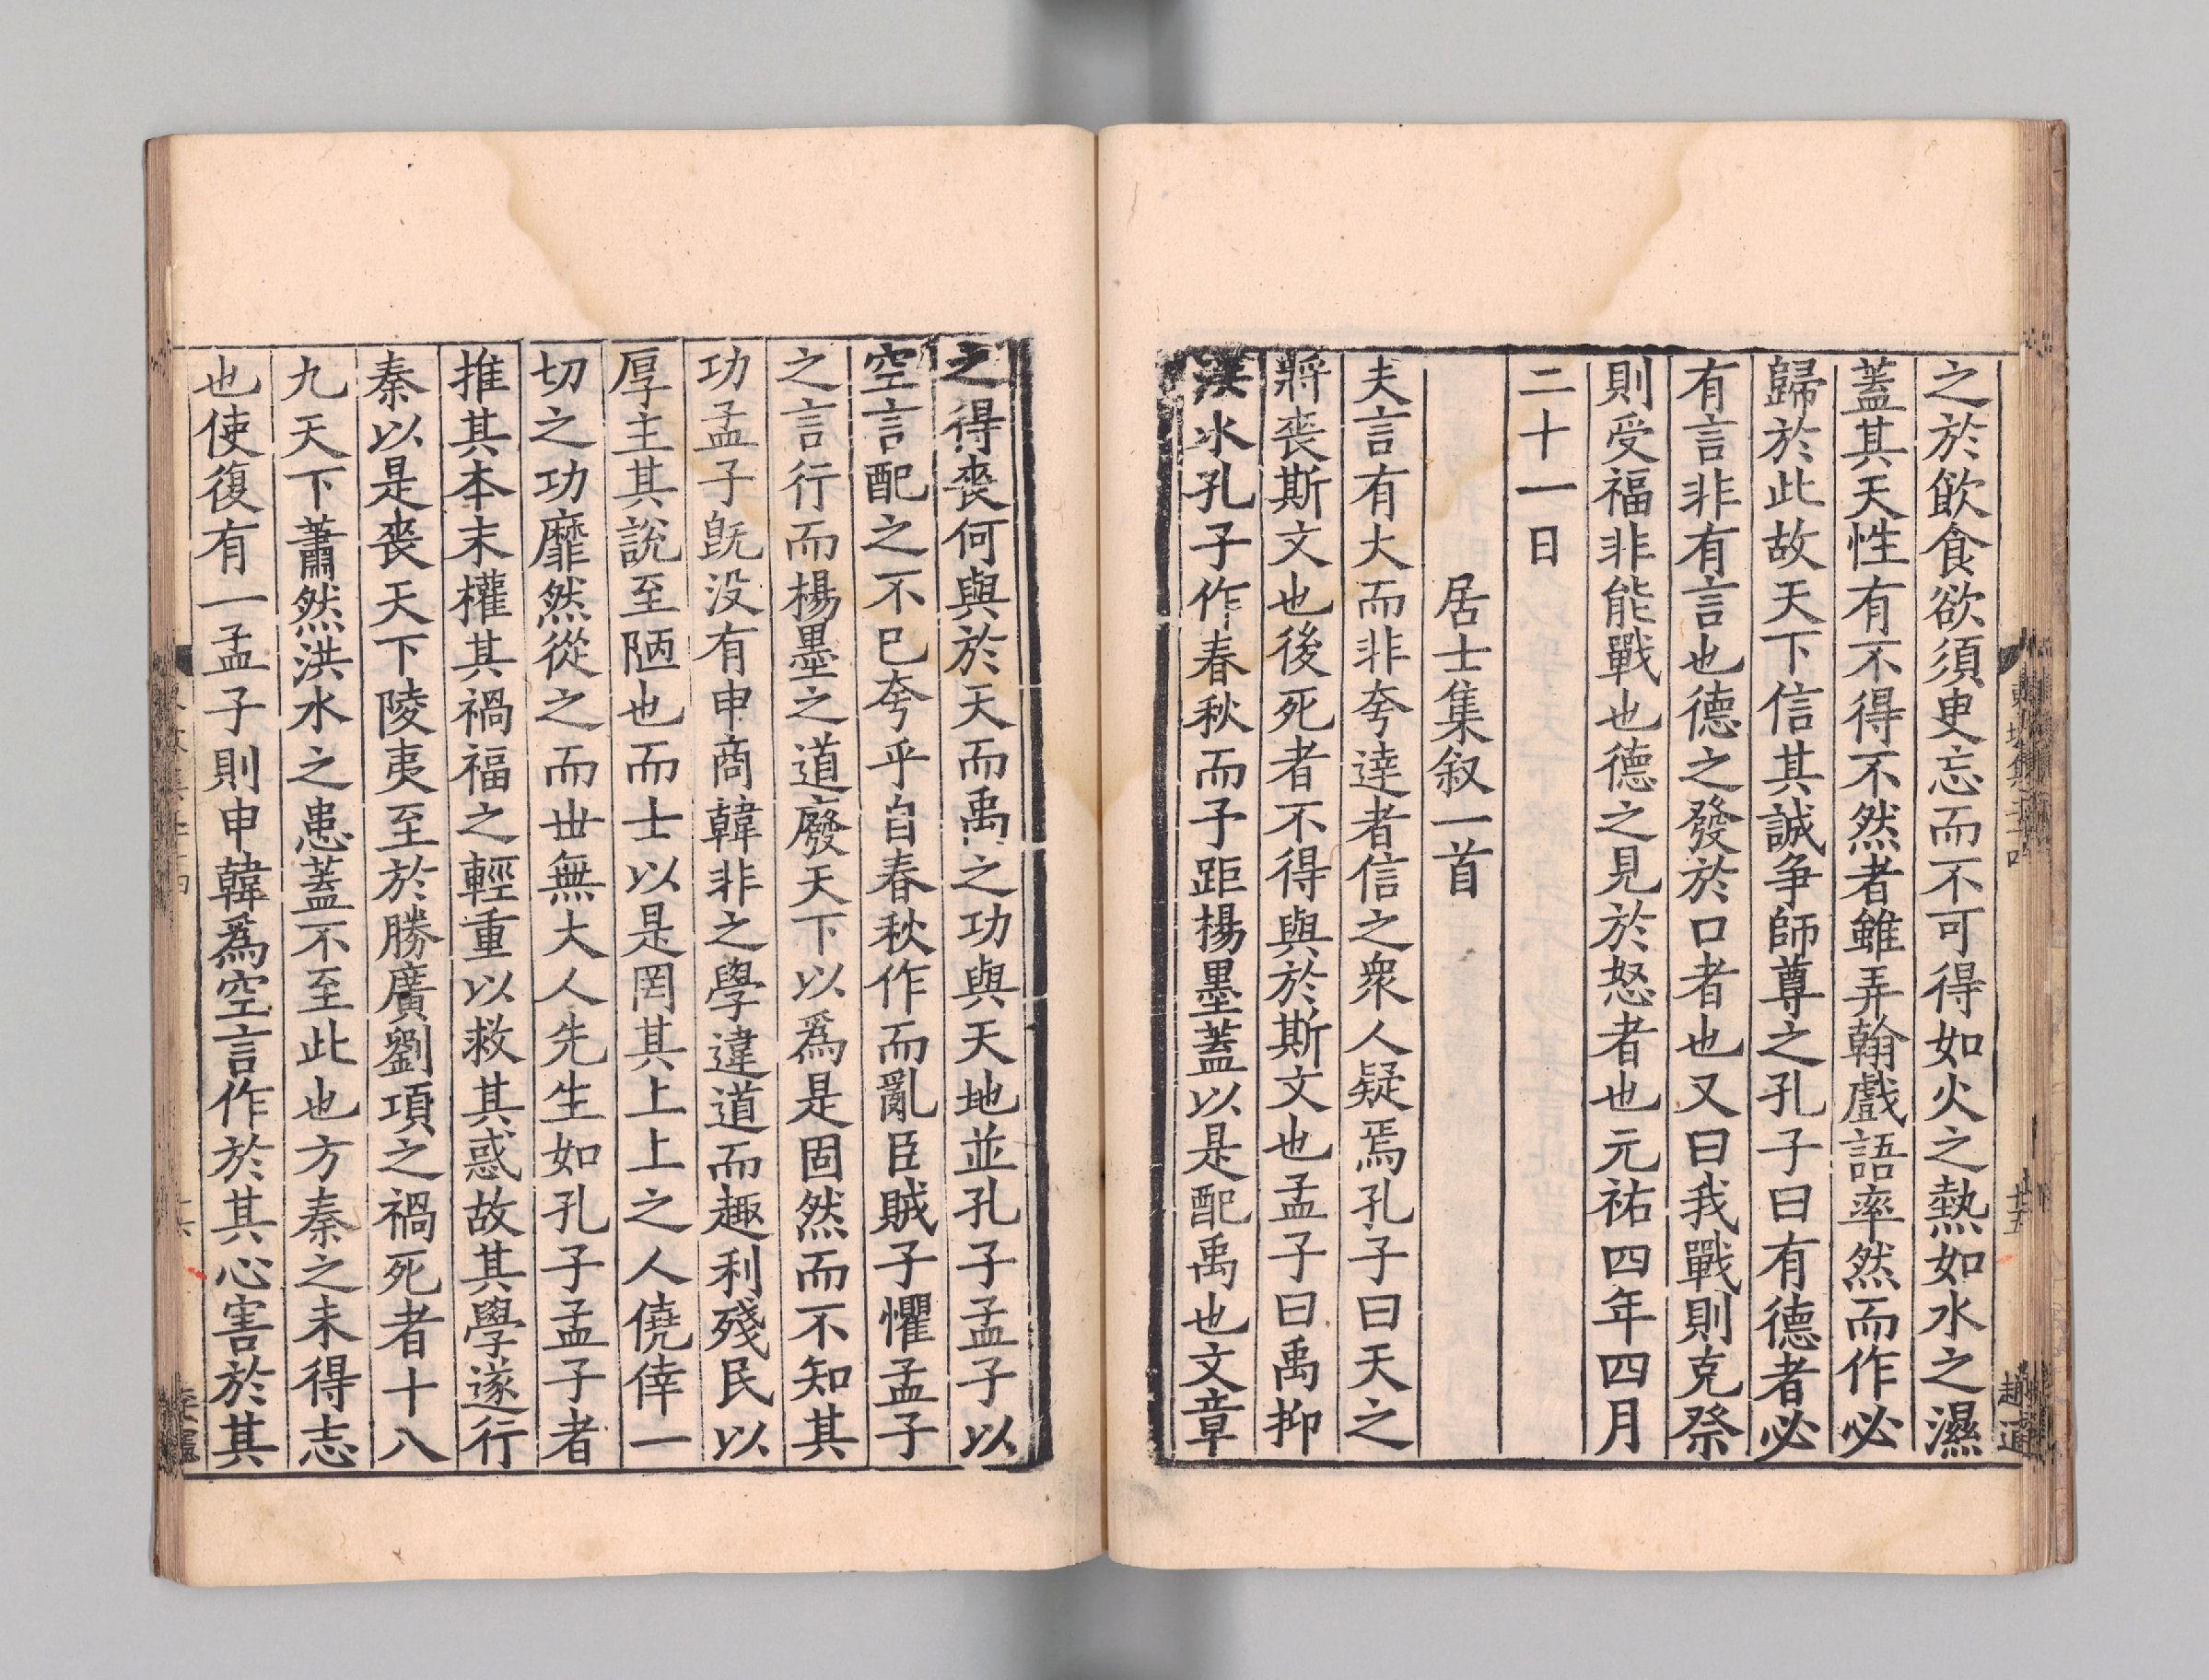 之於飲食欲須臾忘而不可得如火之熱如水之濕
蓋其天性有不得不然者雖弄翰戲語率然而作必
歸於此故天下信其誠爭師尊之孔子曰有德者必
有言非有言也德之發於口者也又曰我戰則克祭
則受福非能戰也德之見於怒者也元祐四年四月
二十一日
居士集叙一首
夫言有大而非夸達者信之衆人疑焉孔子曰天之
將喪斯文也後死者不得與於斯文也孟子曰禹抑
洪水孔子作春秋而予距楊墨蓋以是配禹也文章
之得喪何與於天而禹之功與天地並孔子孟子以
空言配之不已夸乎自春秋作而亂臣賊子懼孟子
之言行而楊墨之道廢天下以爲是固然而不知其
功孟子旣没有申商韓非之學違道而趣利殘民以
厚主其說至陋也而士以是罔其上上之人僥倖一
切之功靡然從之而世無大人先生如孔子孟子者
推其本末權其禍福之輕重以救其惑故其學遂行
秦以是喪天下陵夷至於勝廣劉項之禍死者十八
九天下蕭然洪水之患蓋不至此也方秦之未得志
也使復有一孟子則申韓爲空言作於其心害於其